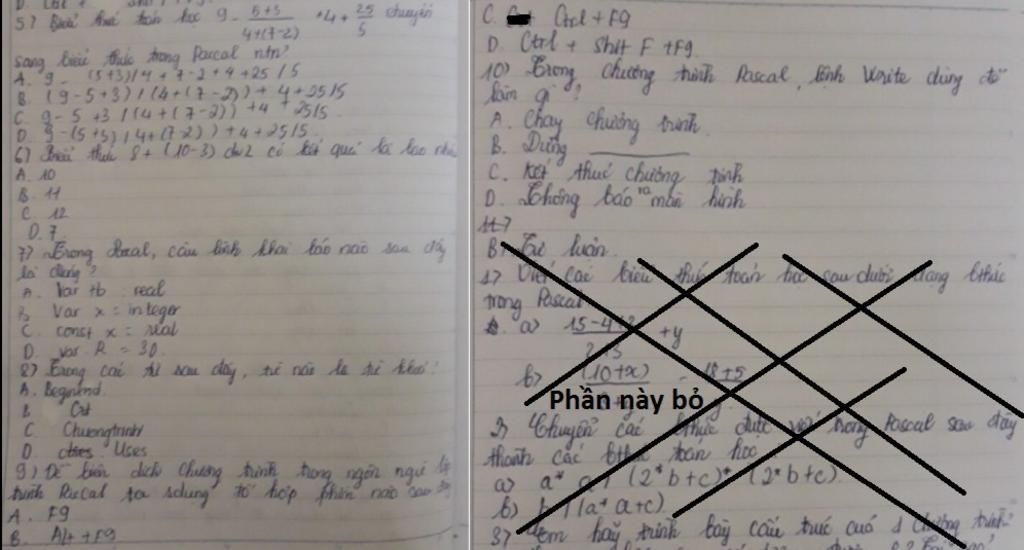 5) Biểu thức toán học 9 - 5+3 / 4+(7-2) + 4 + 25/5 chuyển
sang biểu thức trong Pascal ntn?
A. 9 - (5+3)/4 + 7-2 + 4 + 25/5
B. (9-5+3)/(4+(7-2)) + 4 + 25/5
C. 9-5+3/(4+(7-2)) + 4 + 25/5
D. 9-(5+3)/4+(7-2)) + 4+25/5.
6) Biểu thức 8 + (10-3) div2 có kết quả là bao nhiêu
A. 10
B. 11
C. 12
D. 7.
7) Trong Pascal, câu lệnh khai báo nào sau đây
là đúng?
A. Var tb : real
B. Var x = integer
C. const x = real
D. var R = 30.
8) Trong các từ sau đây, từ nào là từ khoá?
A. Beginend.
B. Crt
C. Chuongtrinh
D. Uses
9) Để biên dịch Chương trình trong ngôn ngữ lập
trình Pascal ta sdụng tổ hợp phím nào sau
A. F9
B. Alt + F9
C. Ctrl + F9
D. Ctrl + Shift F + F9
10) Trong chương trình Pascal, lệnh Write dùng để
làm gì?
A. Chạy chương trình.
B. Dừng
C. Kết thúc chương trình
D. Thông báo ra màn hình
B. Tự luận.
1) Viết các biểu thức toán học sau dưới dạng bthức
trong Pascal
a) 15-4 + y
b) (10+x) - 18+5
Phần này bỏ
2) Chuyển các bthức được viết trong Pascal sau đây
thành các bthức toán học
a) a* a / (2*b+c)* (2*b+c)
b) b / (a* a+c)
3) Em hãy trình bày cấu trúc của 1 chương trình?